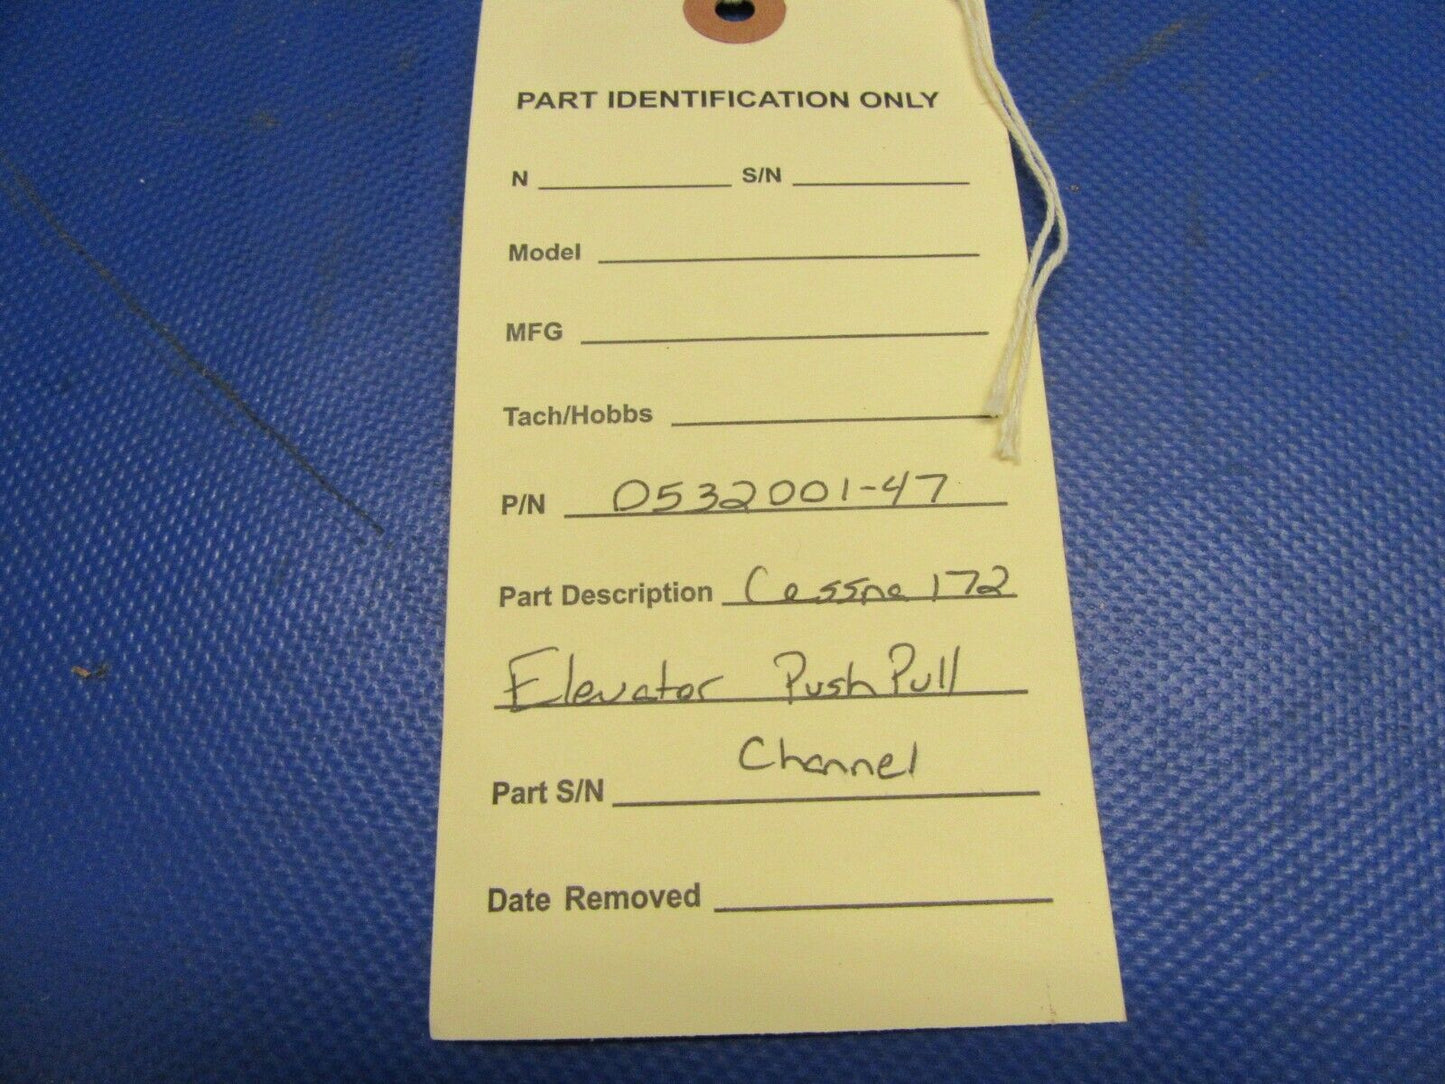 PART IDENTIFICATION ONLY
N S/N
Model
MFG
Tach/Hobbs
P/N 0532001-47
Part Description Cessna 172
Elevator Push Pull
Channel
Part S/N
Date Removed